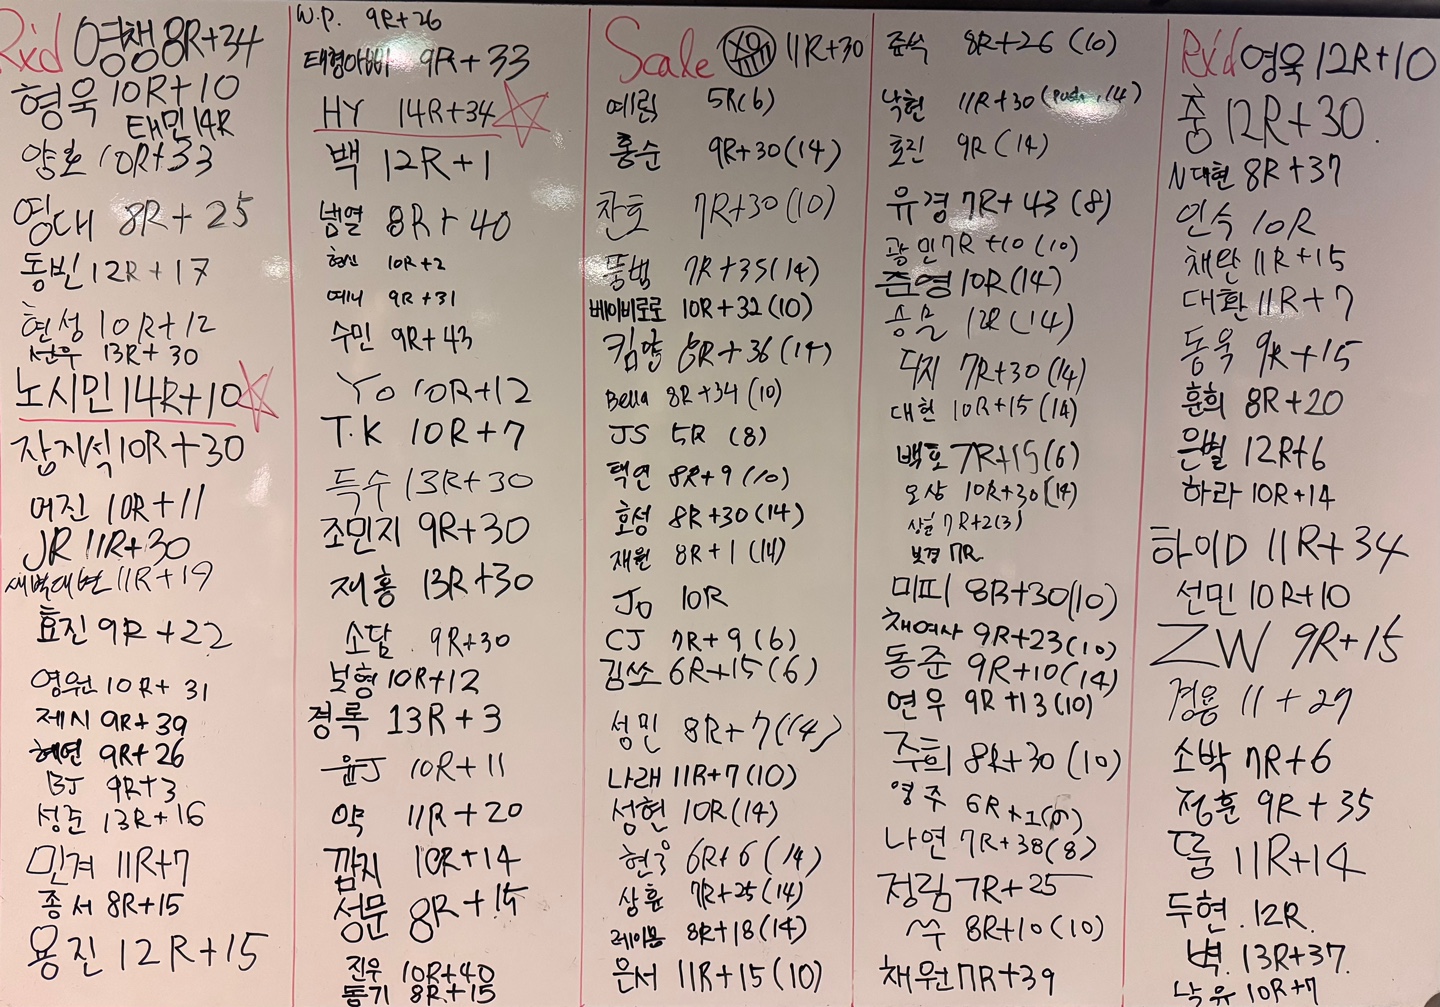 Rx'd 영챙 8R+34
형욱 10R+10
태민 14R
양호 10R+33
영대 8R+25
동빈 12R+17
현성 10R+12
선우 13R+30
노시민 14R+10
잠지식 10R+30
머진 10R+11
JR 11R+30
새벽대변 11R+19
효진 9R+22
영원 10R+31
제시 9R+39
혜연 9R+26
BJ 9R+3
성준 13R+16
민겨 11R+7
종서 8R+15
용진 12R+15
W.P. 9R+26
태형아빠 9R+33
HY 14R+34
백 12R+1
범열 8R+40
형신 10R+2
예니 9R+31
수민 9R+43
Yo 10R+12
T.K 10R+7
득수 13R+30
조민지 9R+30
재홍 13R+30
소담 9R+30
보형 10R+12
경록 13R+3
윤J 10R+11
약 11R+20
깜지 10R+14
성문 8R+15
진우 10R+40
통기 8R+15
Scale 11R+30
예림 5R(6)
홍순 9R+30(14)
찬호 7R+30(10)
뚱뱀 7R+35(14)
베이비로로 10R+32(10)
킴얄 8R+36(14)
Bella 8R+34(10)
JS 5R (8)
택연 8R+9(10)
호성 8R+30(14)
재원 8R+1(14)
Jo 10R
CJ 7R+9(6)
김쏘 6R+15(6)
성민 8R+7(14)
나래 11R+7(10)
성현 10R(14)
현우 6R+6(14)
상훈 7R+25(14)
레이몽 8R+18(14)
은서 11R+15(10)
준석 8R+26(10)
낙현 11R+30(push, 14)
효진 9R(14)
유경 7R+43(8)
광민 7R+10(10)
준영 10R(14)
승모 12R(14)
디지 7R+30(14)
대헌 10R+15(14)
백호 7R+15(6)
오상 10R+30(14)
7R+2(3)
보경 7R
미피 8R+30(10)
채여사 9R+23(10)
동준 9R+10(14)
연우 9R+13(10)
주희 8R+30(10)
영주 6R+1
나연 7R+38(8)
정림 7R+25
쑤 8R+10(10)
채원 7R+39
Rx'd 영욱 12R+10
춤 12R+30
N대현 8R+37
인숙 10R
채완 11R+15
대환 11R+7
동욱 9R+15
훈희 8R+20
은별 12R+6
하라 10R+14
하이D 11R+34
선민 10R+10
ZW 9R+15
경용 11+27
소박 7R+6
정훈 9R+35
룸 11R+14
두현 12R
벽 13R+37
낙유 10R+7